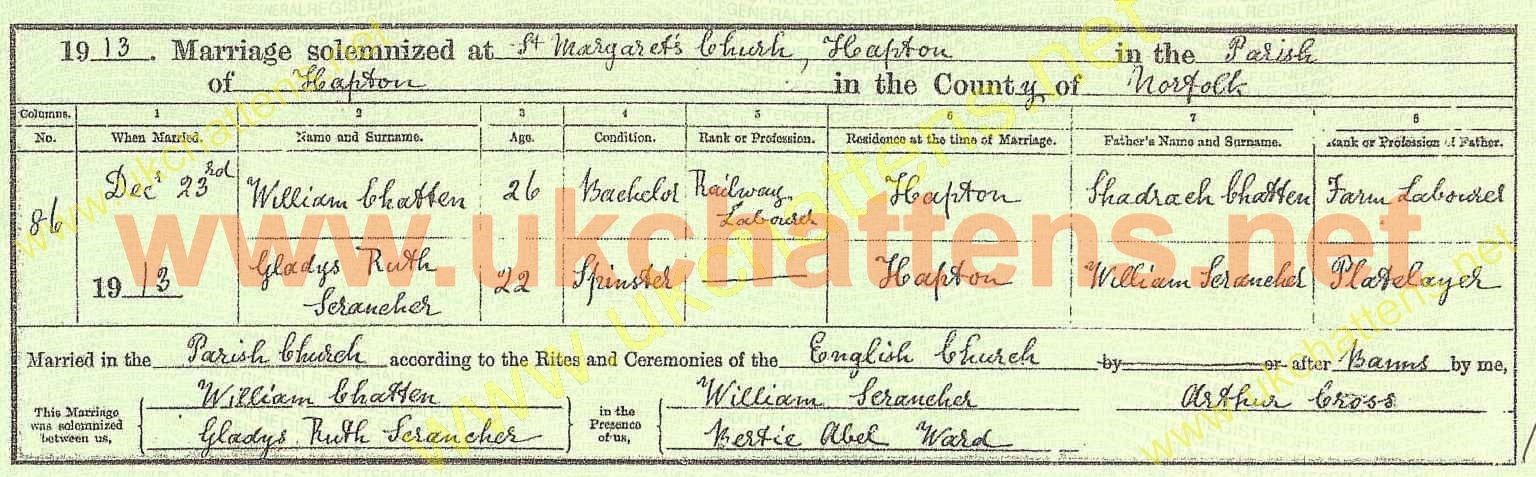 1913. Marriage solemnized at St Margaret's Church, Hapton in the Parish
of Hapton in the County of Norfolk
Columns. 1 2 3 4 5 6 7 8
No. When Married. Name and Surname. Age. Condition. Rank or Profession. Residence at the time of Marriage. Father's Name and Surname. Rank or Profession of Father.
86 Dec' 23rd 1913 William Chatten 26 Bachelor Railway Labourer Hapton Shadrach Chatten Farm Labourer
Gladys Ruth Scrancher 22 Spinster Hapton William Scrancher Platelayer
Married in the Parish Church according to the Rites and Ceremonies of the English Church by or after Banns by me,
This Marriage was solemnized between us, William Chatten
Gladys Ruth Scrancher
in the Presence of us, William Scrancher
Bertie Abel Ward
Arthur Cross
www.ukchattens.net
www.ukchattens.net
www.ukchattens.net
www.ukchattens.net
www.ukchattens.net